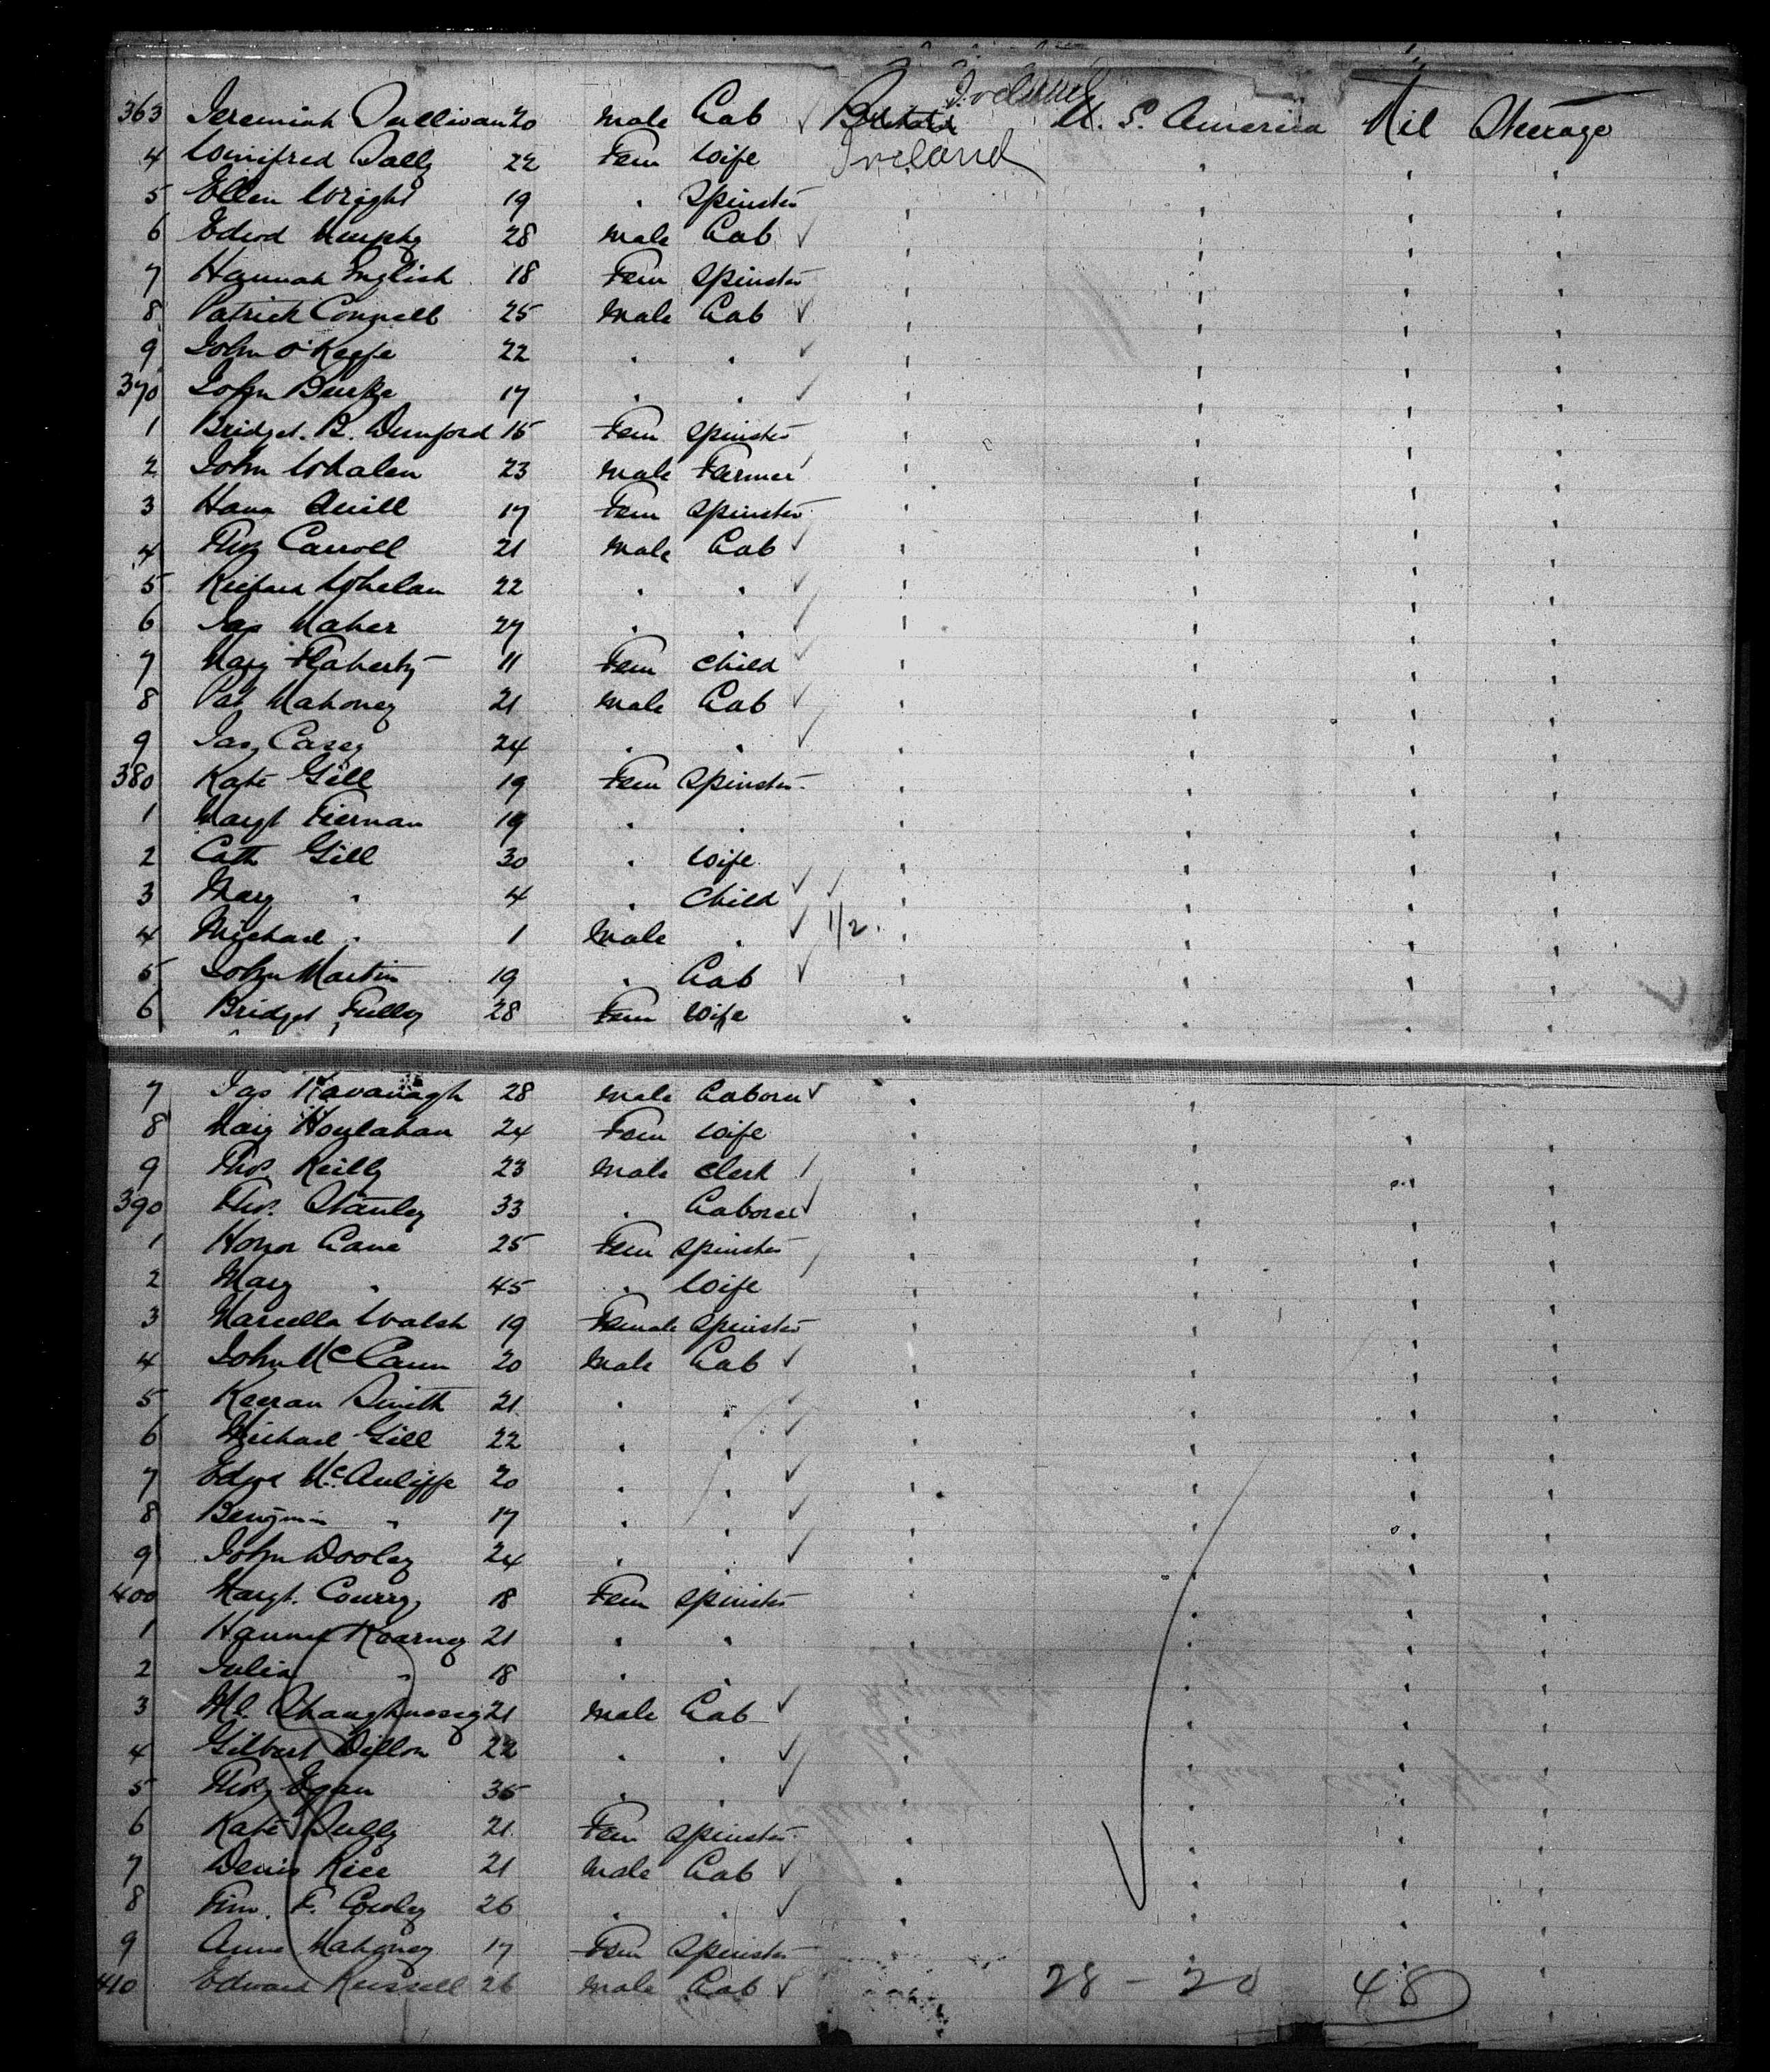 Ireland
363 Jeremiah Sullivan 20 Male Lab ✓ U. S. America Nil Steerage
4 Winifred Dally 22 Fem Wife Ireland
5 Ellen Wright 19 " Spinster
6 Edwd Murphy 28 Male Lab ✓
7 Hannah English 18 Fem Spinster
8 Patrick Connell 25 Male Lab ✓
9 John O'Keefe 22 " " ✓
370 John Burke 17 " " ✓
1 Bridget. B. Dunford 15 Fem Spinster
2 John Whalen 23 Male Farmer
3 Hana Quill 17 Fem Spinster
4 Thos Carroll 21 Male Lab ✓
5 Richard Whelan 22 " " ✓
6 Jas Maher 27 " " ✓
7 Mary Flaherty 11 Fem Child
8 Pat Mahoney 21 Male Lab ✓
9 Jas Casey 24 " " ✓
380 Kate Gill 19 Fem Spinster
1 Margt Tiernan 19 " "
2 Cath Gill 30 " Wife
3 Mary " 4 " Child ✓ ✓
4 Michael " 1 Male " ✓ 1/2.
5 John Martin 19 " Lab ✓
6 Bridget 28 Fem Wife
7 Jas Kavanagh 28 Male Laborer ✓
8 Mary Houlahan 24 Fem Wife
9 Thos. Reilly 23 Male Clerk
390 Thos. Stanley 33 " Laborer ✓
1 Honor Lane 25 Fem Spinster
2 Mary " 45 " Wife
3 Marcella Walsh 19 Female Spinster
4 John McCann 20 Male Lab ✓
5 Keeran Smith 21 " " ✓
6 Michael Gill 22 " " ✓
7 Edwd McAuliffe 20 " " ✓
8 Benjmin " 17 " " ✓
9 John Dooley 24 " " ✓
400 Margt. 18 Fem Spinster
1 Kearney 21 " "
2 Julia " 18 " "
3 Ml. Shaughnessy 21 Male Lab ✓
4 Gilbert Dillon 22 " " ✓
5 Thos Egan 35 " " ✓
6 Kate 21 Fem Spinster
7 Denis Rice 21 Male Lab ✓
8 Tim. F. 26 " " ✓
9 Anne Mahoney 17 Fem Spinster
410 Edward Russell 26 Male Lab ✓ 28 - 20 48